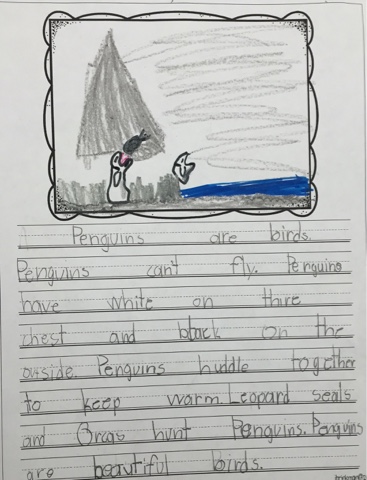 Penguins are birds.
Penguins can't fly. Penguins
have white on thire
chest and black on the
outside. Penguins huddle together
to keep warm. Leopard seals
and Orcas hunt Penguins. Penguins
are beautiful birds.